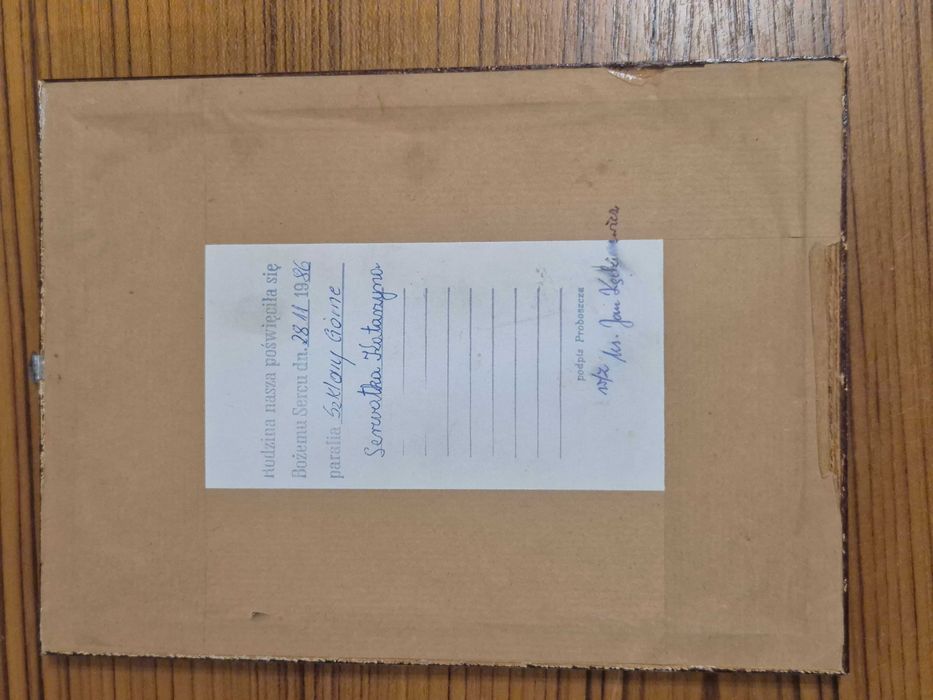 Rodzina nasza poświęciła się
Bożemu Sercu dn. 28 11 1986
parafia Szklary Górne
Serwatka Katarzyna
podpis Proboszcza
w/z ks. Jan